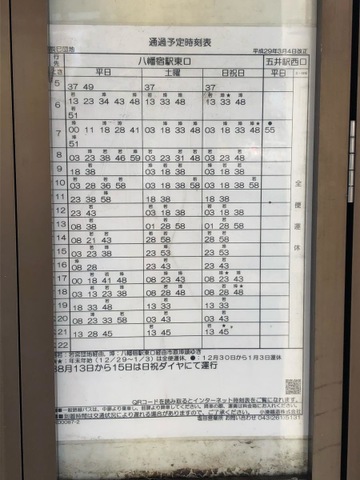 通過予定時刻表
辰巳団地 平成29年3月4日改正
行先 八幡宿駅東口 五井駅西口
平日 土曜 日祝日 平日
5 37 49 37 37
6 13 23 34 43 48 13 33 48 13 33 48
51
7 00 11 18 28 41 03 18 33 48 03 18 33 48 55
51
8 03 23 38 46 59 03 23 31 48 03 23 48
9 18 38 03 18 38 03 18 38
10 03 28 36 58 03 18 38 58 03 18 38 58
11 23 38 58 18 38 18 38
12 23 43 03 18 38 03 18 38
13 08 38 01 28 58 01 28 58
14 08 21 43 28 58 28 58
15 08 23 38 23 53 23 53
16 08 28 23 43 23 43
17 00 18 41 48 03 23 48 03 23 48
18 03 13 23 38 08 28 48 08 28 48
19 18 33 48 13 33 13 33
20 08 23 33 58 03 43 03 43
21 13 28 45 13 45 13 45
22
全便運休
若:若宮団地経由、海:八幡宿駅東口経由市原埠頭ゆき
★:年末年始(12/29~1/3)は全便運休、●:12月30日から1月3日運休
8月13日から15日は日祝ダイヤにて運行
QRコードを読み取るとインターネット時刻表をご覧になれます。
小湊鐵道株式会社
お問い合わせ 043(261)5131